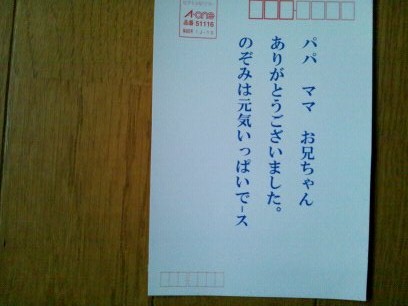 パパ　ママ　お兄ちゃん
ありがとうございました。
のぞみは元気いっぱいでｰス
A-one
品番 51116